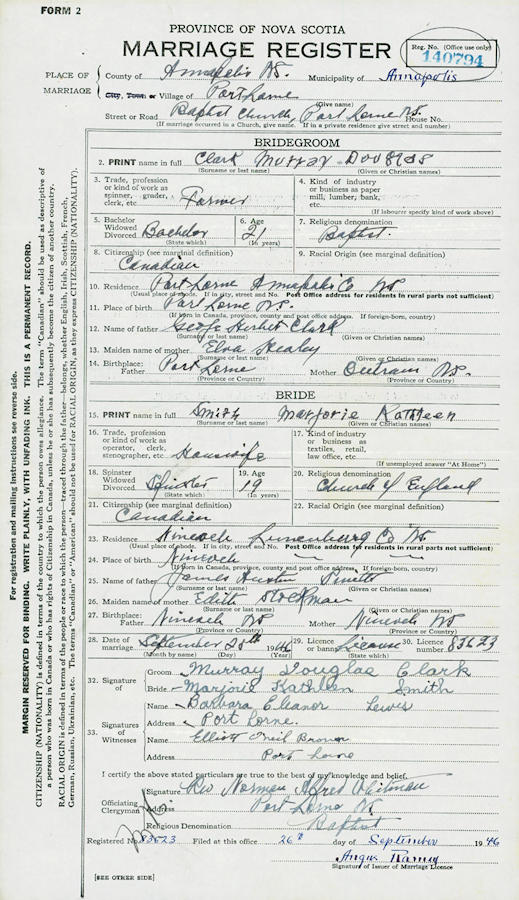 FORM 2
PROVINCE OF NOVA SCOTIA
MARRIAGE REGISTER
Reg. No. (Office use only)
140794
PLACE OF MARRIAGE
County of Annapolis NS. Municipality of Annapolis
City, Town or Village of Port Lorne
(Give name)
Street or Road Baptist Church, Port Lorne NS. House No.
(If marriage occurred in a Church, give name. If in a private residence give street and number)
BRIDEGROOM
2. PRINT name in full Clark Murray Douglas
(Surname or last name) (Given or Christian names)
3. Trade, profession or kind of work as spinner, grader, clerk, etc. Farmer
4. Kind of industry or business as paper mill, lumber, bank, etc.
(If labourer specify kind of work above)
5. Bachelor Widowed Divorced Bachelor
(State which)
6. Age 21
(In years)
7. Religious denomination Baptist.
8. Citizenship (see marginal definition) Canadian
9. Racial Origin (See marginal definition)
10. Residence Port Lorne Annapolis Co NS
(Usual place of abode. If in city, street and No. Post Office address for residents in rural parts not sufficient)
11. Place of birth Port Lorne NS.
(If in Canada, province, county and city or town. If foreign-born, country)
12. Name of father Geo. Herbert Clark
(Surname or last name) (Given or Christian names)
13. Maiden name of mother Elva Healey
(Surname or last name) (Given or Christian names)
14. Birthplace: Father Port Lorne Mother Outram NS.
(Province or Country) (Province or Country)
BRIDE
15. PRINT name in full Smith Marjorie Kathleen
(Surname or last name) (Given or Christian names)
16. Trade, profession or kind of work as operator, clerk, stenographer, etc. Housewife
17. Kind of industry or business as textiles, retail, law office, etc
(If unemployed answer "At Home")
18. Spinster Widowed Divorced Spinster
(State which)
19. Age 19
(In years)
20. Religious denomination Church of England
21. Citizenship (see marginal definition) Canadian
22. Racial Origin (see marginal definition)
23. Residence Nineveh Lunenburg Co NS
(Usual place of abode. If in city, street and No. Post Office address for residents in rural parts not sufficient)
24. Place of birth Nineveh
(If in Canada, province, county and city or town. If foreign-born, country)
25. Name of father James
(Surname or last name) (Given or Christian names)
26. Maiden name of mother Edith
(Surname or last name) (Given or Christian names)
27. Birthplace: Father Nineveh NS Mother Nineveh NS
(Province or Country) (Province or Country)
28. Date of marriage September 28th 1946
(Month by name) (Day)
29. Licence or banns License
(State which)
30. Licence number 83623
32. Signature of
Groom Murray Douglas Clark
Bride Marjorie Kathleen Smith
33. Signatures of Witnesses
Name Barbara Eleanor Lewis
Address Port Lorne.
Name Elliott O'Neil Brown
Address Port Lorne
I certify the above stated particulars are true to the best of my knowledge and belief.
Officiating Clergyman
Signature Rev Norman Alfred Whitman
Address Port Lorne NS
Religious Denomination Baptist
Registered No. 83623 Filed at this office 26th day of September 1946
Angus
Signature of Issuer of Marriage Licence
[SEE OTHER SIDE]
For registration and mailing instructions see reverse side.
MARGIN RESERVED FOR BINDING. WRITE PLAINLY, WITH UNFADING INK. THIS IS A PERMANENT RECORD.
CITIZENSHIP (NATIONALITY) is defined in terms of the country to which the person owes allegiance. The term "Canadian" should be used as descriptive of
a person who was born in Canada or who has rights of Citizenship in Canada, unless he or she has subsequently become the citizen of another country.
RACIAL ORIGIN is defined in terms of the people or race to which the person—traced through the father—belongs, whether English, Irish, Scottish, French,
German, Russian, Ukrainian, etc. The terms "Canadian" or "American" should not be used for RACIAL ORIGIN, as they express CITIZENSHIP (NATIONALITY).